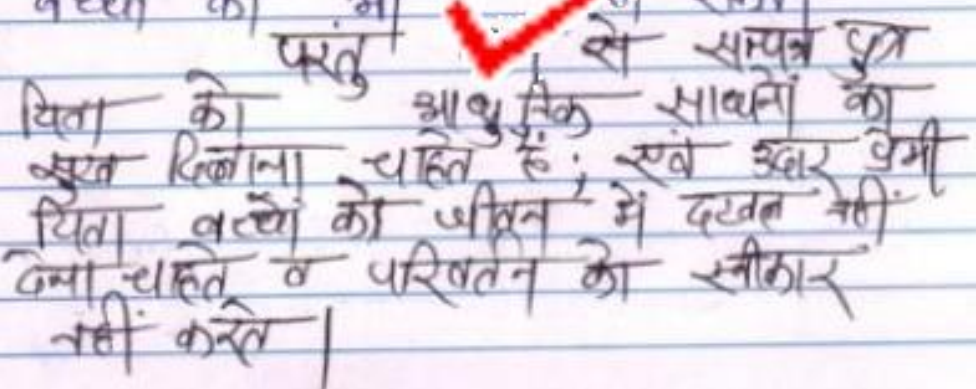 परंतु से सम्पन्न पुत्र
पिता को आधुनिक साधनों का
सुख दिलाना चाहते हैं; एवं उदार प्रेमी
पिता बच्चों को जीवन में दखल नहीं
देना चाहते व परिवर्तन को स्वीकार
नहीं करते।